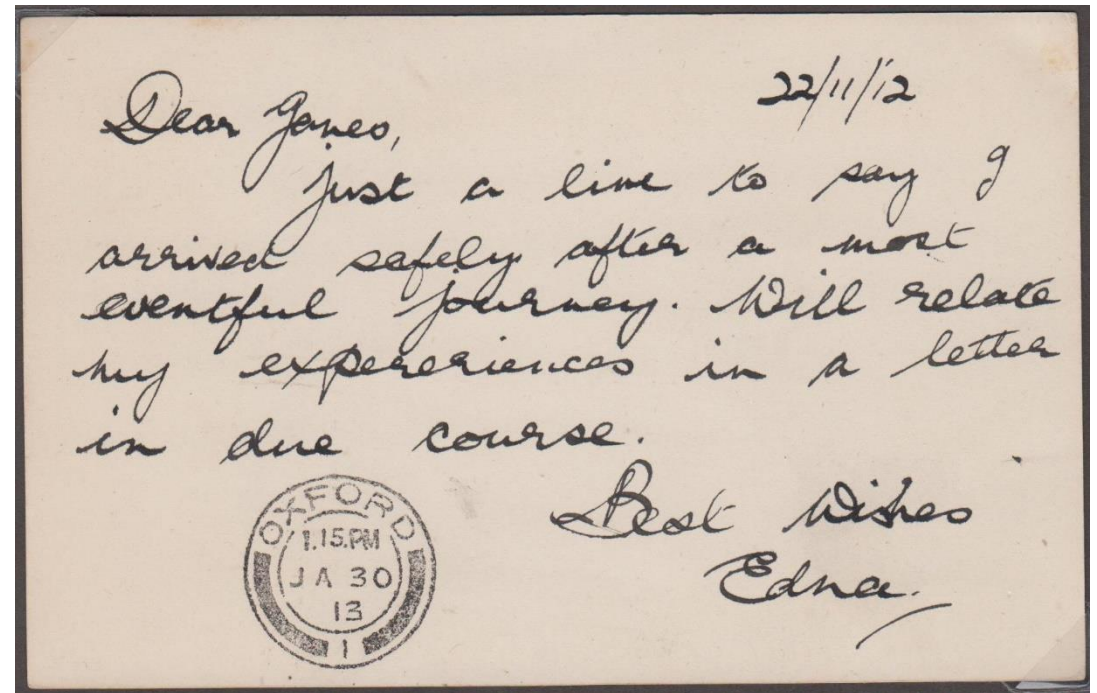 22/11/12
Dear James,
Just a line to say I
arrived safely after a most
eventful journey. Will relate
my expereriences in a letter
in due course.
Best Wishes
Edna.
OXFORD
1.15.PM
JA 30
13
1